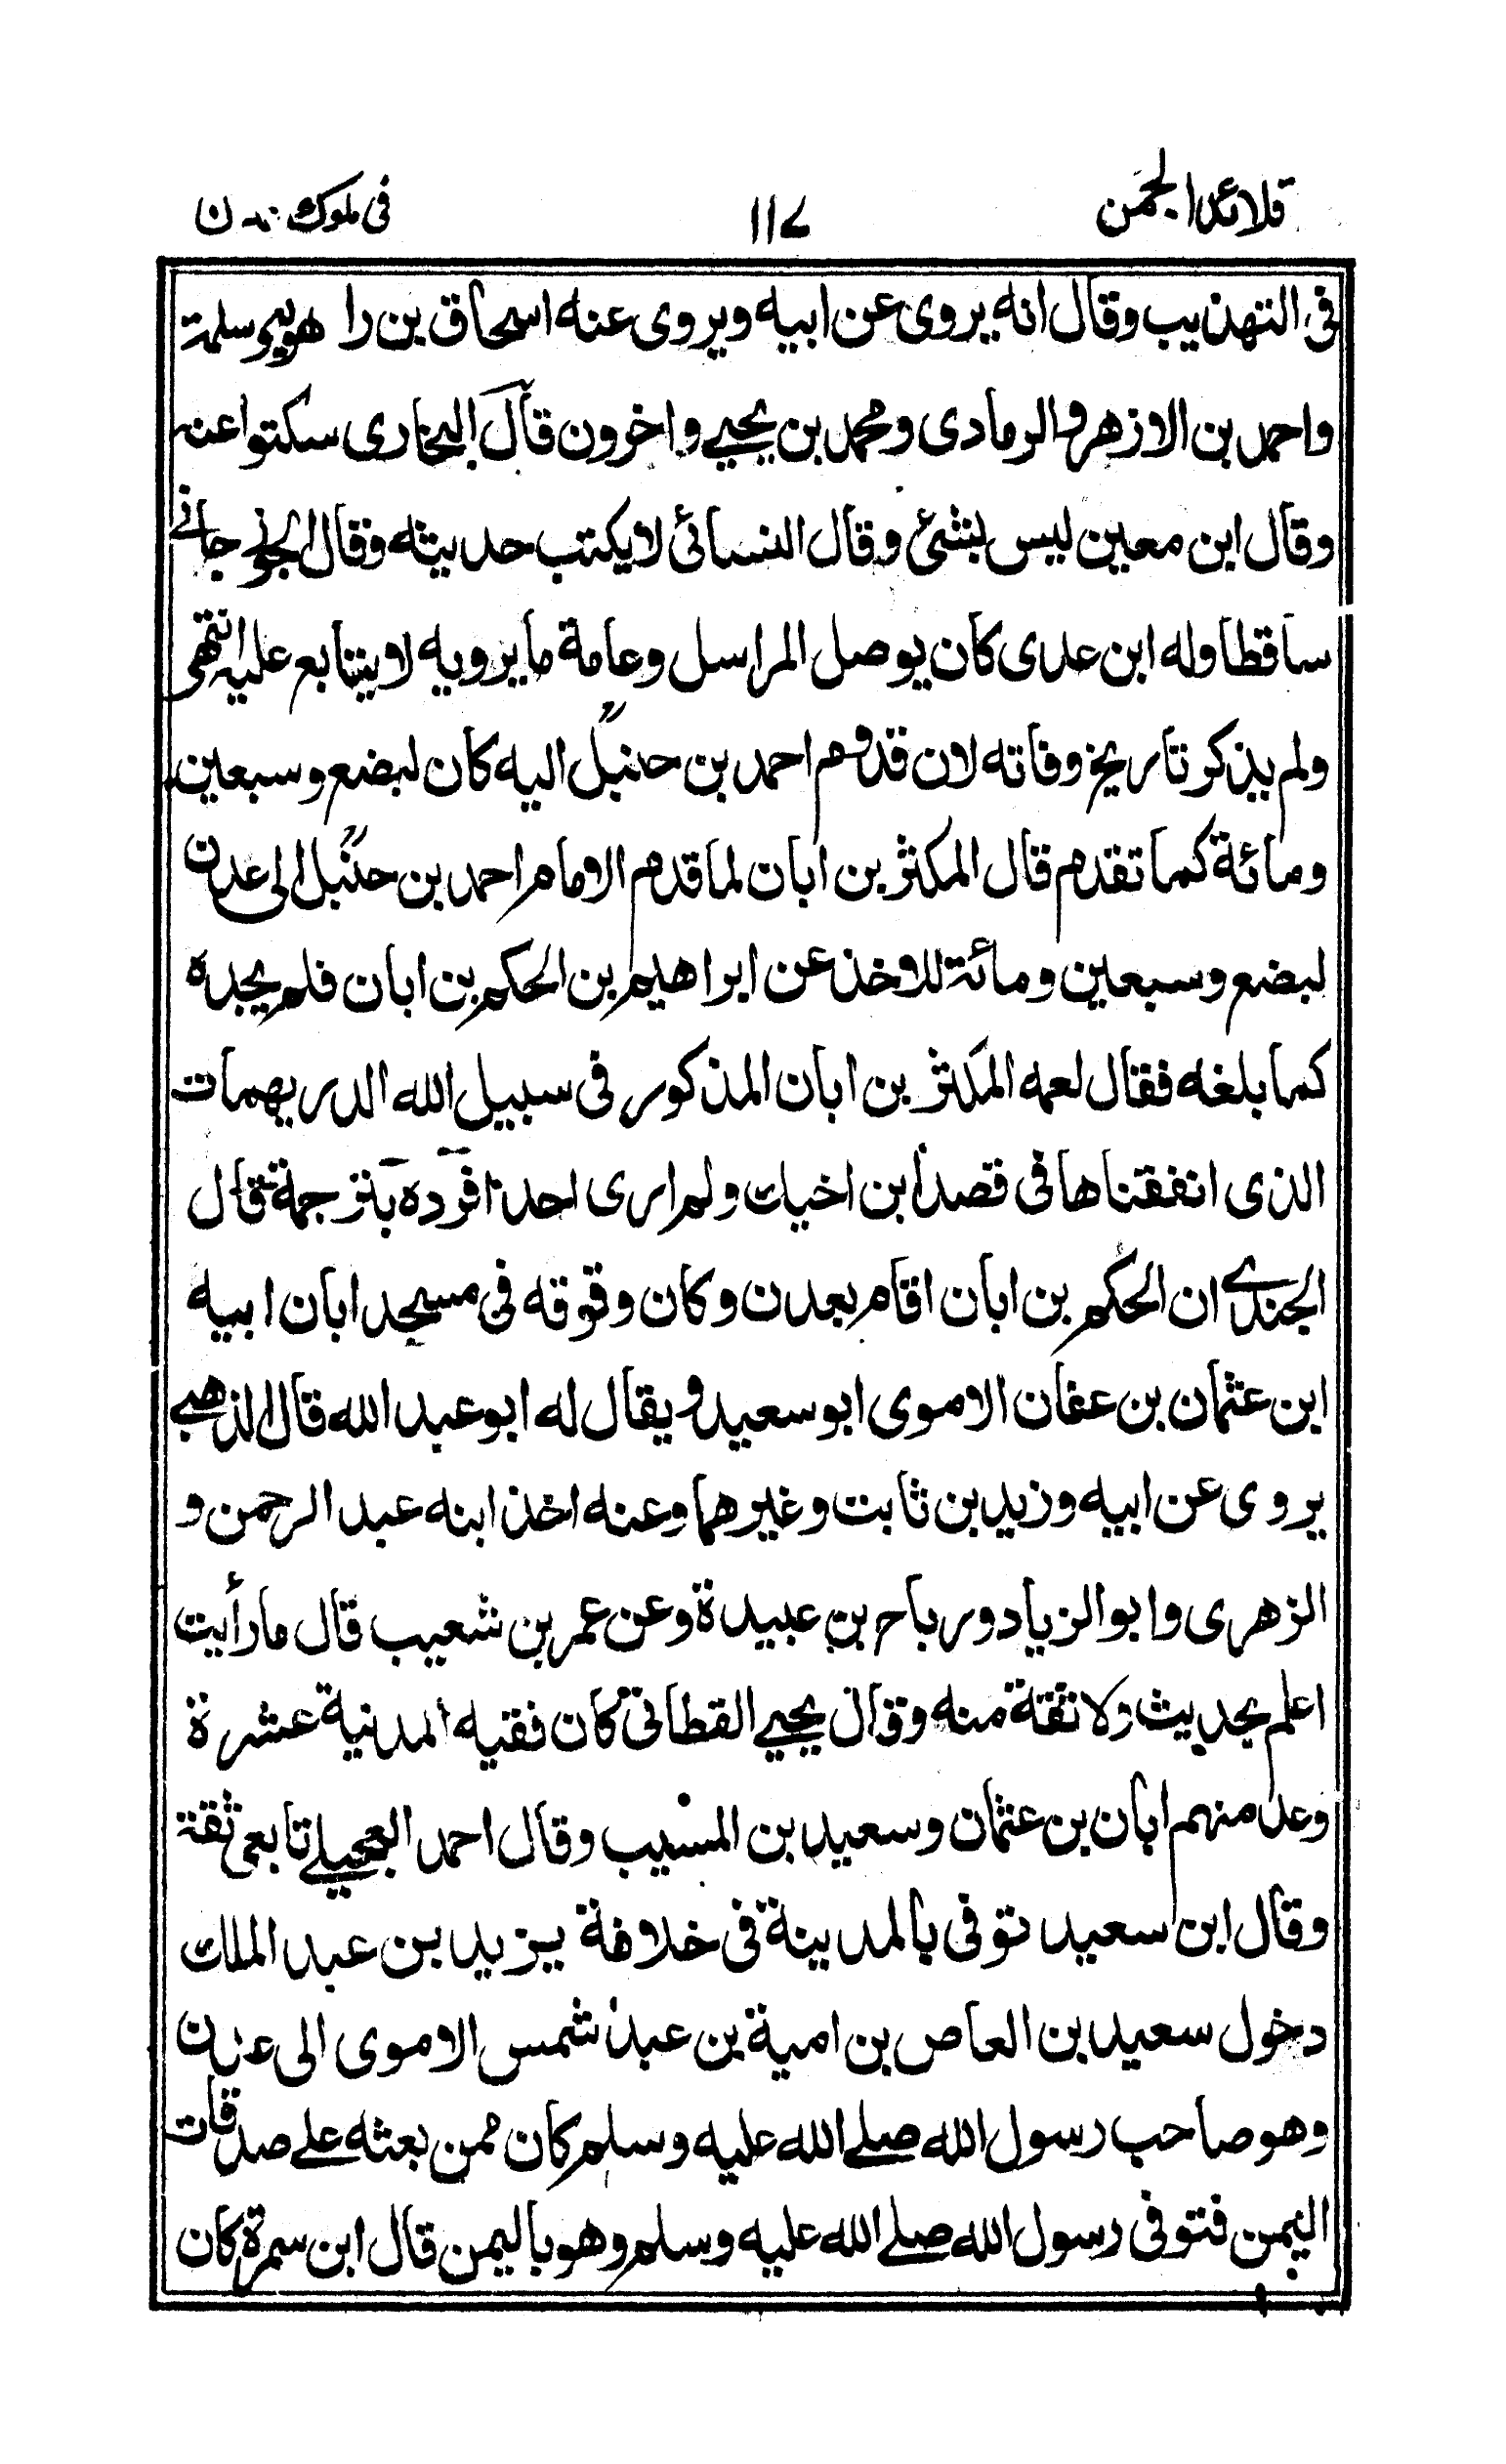 قلائد الجمن ١١٧ فى ملوك عدن
فى التهذيب وقال انه يروى عن ابيه ويروى عنه اسحاق بن را هويه وسلمة
واحمد بن الازهر والرمادى ومحمد بن يحيى واخرون قال البخارى سكتوا عنه
وقال ابن معين ليس بشئ وقال النسائى لا يكتب حديثه وقال الجوزجانى
ساقط اوله ابن عدى كان يوصل المراسل وعامة ما يرويه لا يتابع عليه انتهى
ولم يذكر تاريخ وفاته لان قدوم احمد بن حنبل اليه كان لبضع وسبعين
ومائة كما تقدم قال المكثر بن ابان لما قدم الامام احمد بن حنبل الى عدن
لبضع وسبعين ومائة للاخذ عن ابراهيم بن الحكم بن ابان فلم يجده
كما بلغه فقال لعمه المكثر بن ابان المذكور فى سبيل الله الدريهمات
الذى انفقناها فى قصد ابن اخيك ولم ارى احدا افرده بترجمة قال
الجندى ان الحكم بن ابان اقام بعدن وكان وقوقه فى مسجد ابان ابيه
ابن عثمان بن عفان الاموى ابو سعيد ويقال له ابو عبد الله قال الذهبى
يروى عن ابيه وزيد بن ثابت وغيرهما وعنه اخذ ابنه عبد الرحمن و
الزهرى وابو الزياد ورباح بن عبيدة وعن عمر بن شعيب قال ما رأيت
اعلم بحديث ولا ثقة منه وقال يحيى القطانى كان فقيه المدنية عشرة
وعد منهم ابان بن عثمان وسعيد بن المسيب وقال احمد العجيلى تابعى ثقة
وقال ابن سعيد توفى بالمدينة فى خلافة يزيد بن عبد الملك
دخول سعيد بن العاص بن امية بن عبد شمس الاموى الى عدن
وهو صاحب رسول الله صلى الله عليه وسلم كان ممن بعثه على صدقات
اليمن فتوفى رسول الله صلى الله عليه وسلم وهو باليمن قال ابن سمرة كان